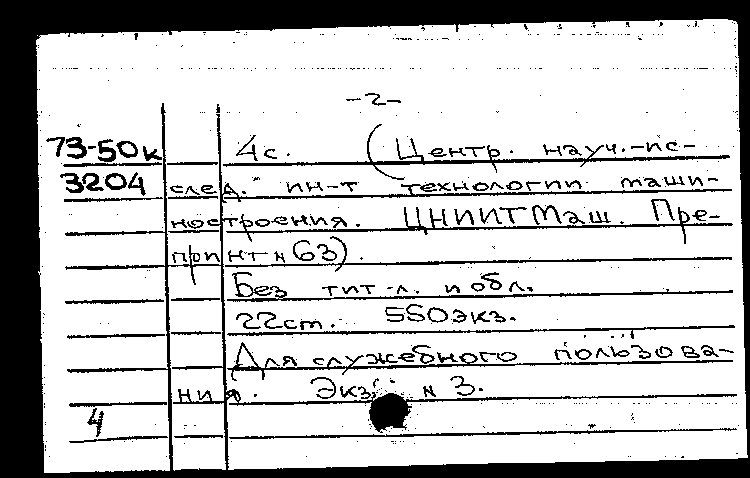 -2-
73-50к 4с. (Центр. науч.-ис-
3204 след. ин-т технологии маши-
ностроения. ЦНИИТМаш. Пре-
принт N 63).
Без тит. л. и обл.
22 cm. 550 экз.
Для служебного пользова-
ния. Экз. N 3.
4